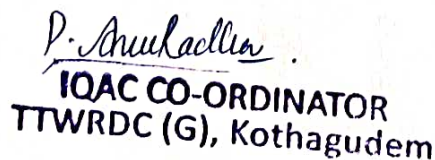 P. Anuradha
IQAC CO-ORDINATOR
TTWRDC (G), Kothagudem